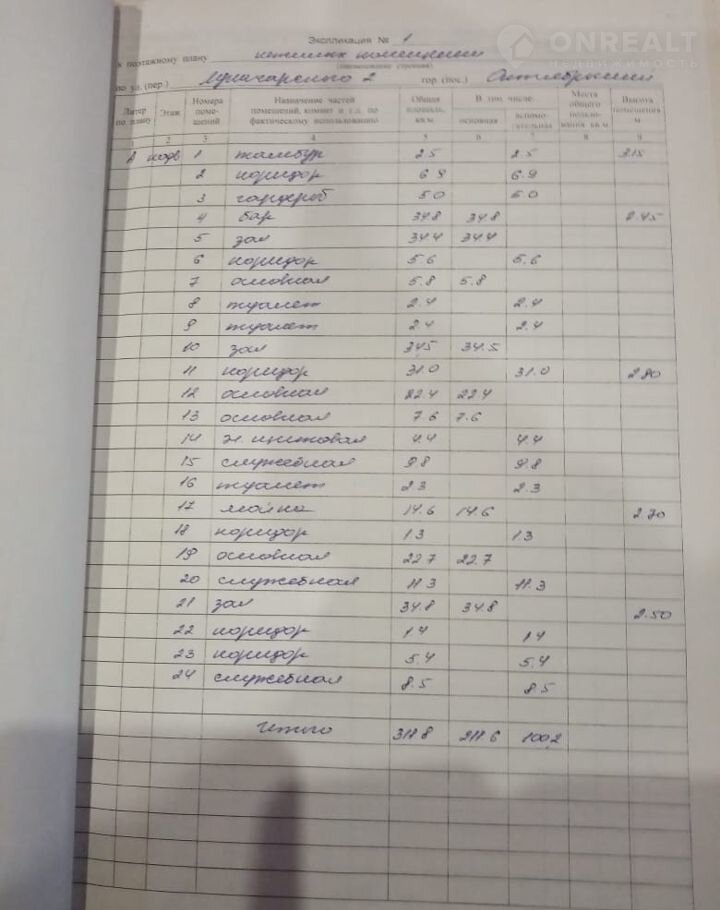 ONREALT
НЕДВИЖИМОСТЬ
Экспликация № 1
к поэтажному плану нежилых помещений
(наименование строения)
по ул. (пер.) Луначарского 2 гор. (пос.) Октябрьский
Литер по плану Этаж Номера поме-щений Назначение частей помещений, комнат и т.д. по фактическому использованию Общая площадь, кв.м В том числе: основная вспомо-гательная Места общего пользо-вания кв.м Высота помещения м
1 2 3 4 5 6 7 8 9
А подв 1 тамбур 2.5 2.5 3.15
2 коридор 6.9 6.9
3 гардероб 5.0 5.0
4 бар 34.8 34.8 2.45
5 зал 34.4 34.4
6 коридор 5.6 5.6
7 основная 5.8 5.8
8 туалет 2.4 2.4
9 туалет 2.4 2.4
10 зал 34.5 34.5
11 коридор 31.0 31.0 2.80
12 основная 22.4 22.4
13 основная 7.6 7.6
14 эл. щитовая 4.4 4.4
15 служебная 9.8 9.8
16 туалет 2.3 2.3
17 мойка 14.6 14.6 2.70
18 коридор 1.3 1.3
19 основная 22.7 22.7
20 служебная 11.3 11.3
21 зал 34.8 34.8 2.50
22 коридор 1.4 1.4
23 коридор 5.4 5.4
24 служебная 8.5 8.5
Итого 311.8 211.6 100.2